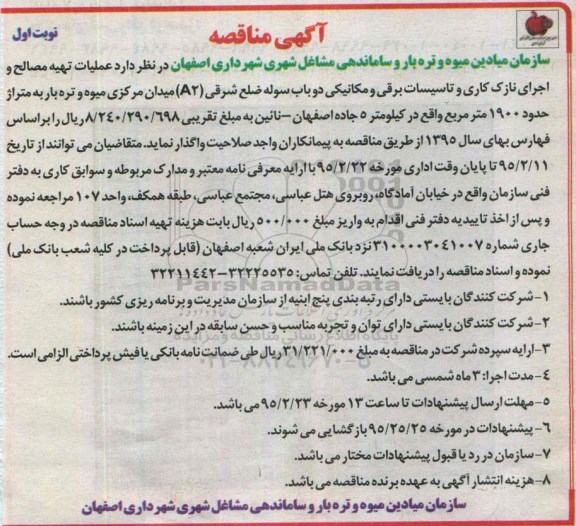 آگهی مناقصه
نوبت اول
سازمان میادین میوه و تره بار و ساماندهی مشاغل شهری شهرداری اصفهان در نظر دارد عملیات تهیه مصالح و
اجرای نازک کاری و تاسیسات برقی و مکانیکی دو باب سوله ضلع شرقی (A2) میدان مرکزی میوه و تره بار به متراژ
حدود ۱۹۰۰ متر مربع واقع در کیلومتر ۵ جاده اصفهان – نائین به مبلغ تقریبی ۸/۲۴۰/۲۹۰/۶۹۸ ریال را بر اساس
فهارس بهای سال ۱۳۹۵ از طریق مناقصه به پیمانکاران واجد صلاحیت واگذار نماید. متقاضیان می توانند از تاریخ
۹۵/۲/۱۱ تا پایان وقت اداری مورخه ۹۵/۲/۲۲ با ارایه معرفی نامه معتبر و مدارک مربوطه و سوابق کاری به دفتر
فنی سازمان واقع در خیابان آمادگاه، روبروی هتل عباسی، مجتمع عباسی، طبقه همکف، واحد ۱۰۷ مراجعه نموده
و پس از اخذ تاییدیه دفتر فنی اقدام به واریز مبلغ ۵۰۰/۰۰۰ ریال بابت هزینه تهیه اسناد مناقصه در وجه حساب
جاری شماره ۳۱۰۰۰۰۳۰۴۱۰۰۷ نزد بانک ملی ایران شعبه اصفهان (قابل پرداخت در کلیه شعب بانک ملی)
نموده و اسناد مناقصه را دریافت نمایند. تلفن تماس: ۳۲۲۲۵۵۳۵–۳۲۲۱۱۴۴۲
ParsNamadData
۱- شرکت کنندگان بایستی دارای رتبه بندی پنج ابنیه از سازمان مدیریت و برنامه ریزی کشور باشند.
۲- شرکت کنندگان بایستی دارای توان و تجربه مناسب و حسن سابقه در این زمینه باشند.
پایگاه اطلاع رسانی مناقصه و مزایده
۳- ارایه سپرده شرکت در مناقصه به مبلغ ۳۱/۲۲۱/۰۰۰ ریال طی ضمانت نامه بانکی یا فیش پرداختی الزامی است.
۰۲۱-۸۸۳۴۹۶۷۰-۵
۴- مدت اجرا: ۳ ماه شمسی می باشد.
۵- مهلت ارسال پیشنهادات تا ساعت ۱۳ مورخه ۹۵/۲/۲۳ می باشد.
۶- پیشنهادات در مورخه ۹۵/۲۵/۲۵ بازگشایی می شوند.
۷- سازمان در رد یا قبول پیشنهادات مختار می باشد.
۸- هزینه انتشار آگهی به عهده برنده مناقصه می باشد.
سازمان میادین میوه و تره بار و ساماندهی مشاغل شهری شهرداری اصفهان